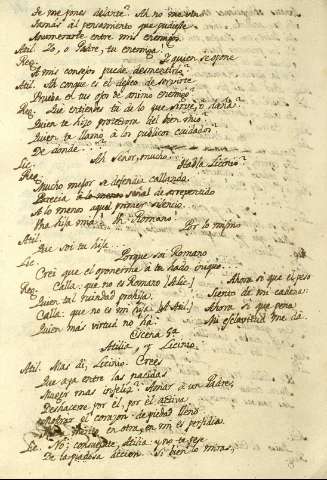 Jamás al pensamiento que pudiese
Numerarte entre mis enemigos.
Atil. Yo, o Padre, tu enemiga!
Reg. Y quien se opone
A mis consejos puede
Atil. Ah conque es el deseo de servirte
Prueba el tus ojos de animo enemigo?
Reg. Que entiendes tu de lo que sirve, o daña?
Quien te hizo protectora del bien mio?
Quien te llamó à los publicos cuidados?
De donde
Lic. Ah Señor, mucho
Reg. Habla Licinio?
Mucho mejor se defendia callando.
Parecia señal de arrepentido
A lo menos aquel primer silencio.
Una hija mia! Un Romano!
Atil. Por lo mismo
Que soi tu hija
Lic. Porque soi Romano
Crei que el oponerme à tu hado iniquo
Reg. Calla: que no es Romano [à Lic.]
Quien tal ruindad prohija.
Calla: que no es mi hija [à Atil.]
Quien mas virtud no ha.
Ahora si que el peso
Siento de mi cadena:
Ahora si que pena
Mi esclavitud me dá.
Escena 5a
Atilia, y Licinio.
Atil. Mas di, Licinio: Crees
Que aya entre las nacidas
Muger mas infeliz? Amar à un Padre,
Deshacerse por el, por el activa
Mostrar el corazon de piedad lleno
en otra, en mi es perfidia.
Lic. No; consuelate, Atilia: y no te pese
De la piadosa accion. Si bien lo miras,